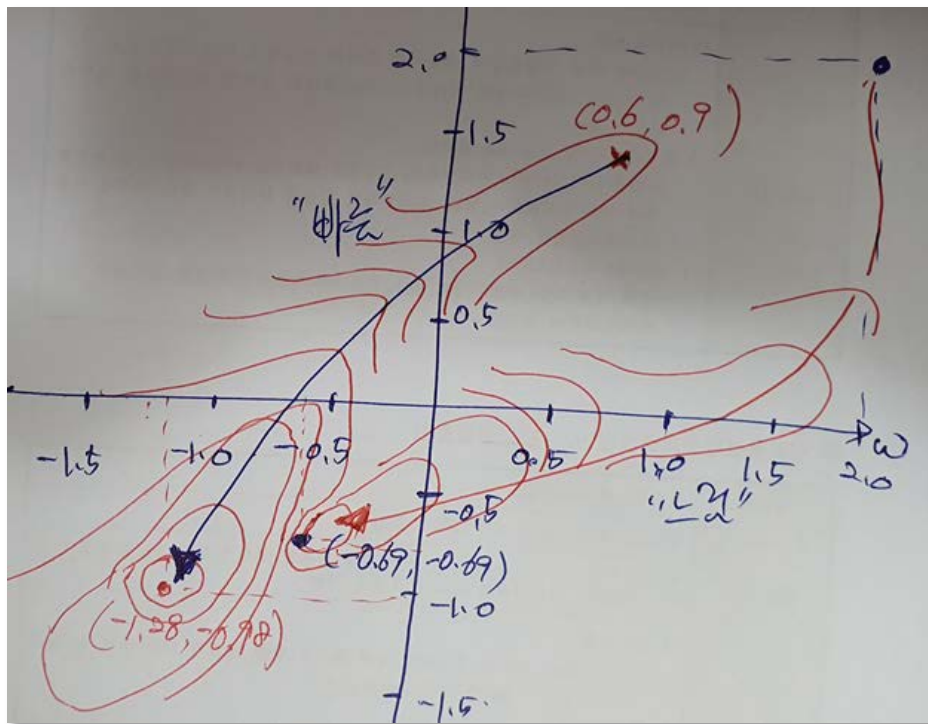 2.0
(0.6, 0.9)
1.5
"빠름"
1.0
0.5
-1.5
-1.0
-0.5
0.5
1.0
1.5
2.0
ω
"느림"
-0.5
(-0.69, -0.69)
-1.0
(-1.28, -0.98)
-1.5